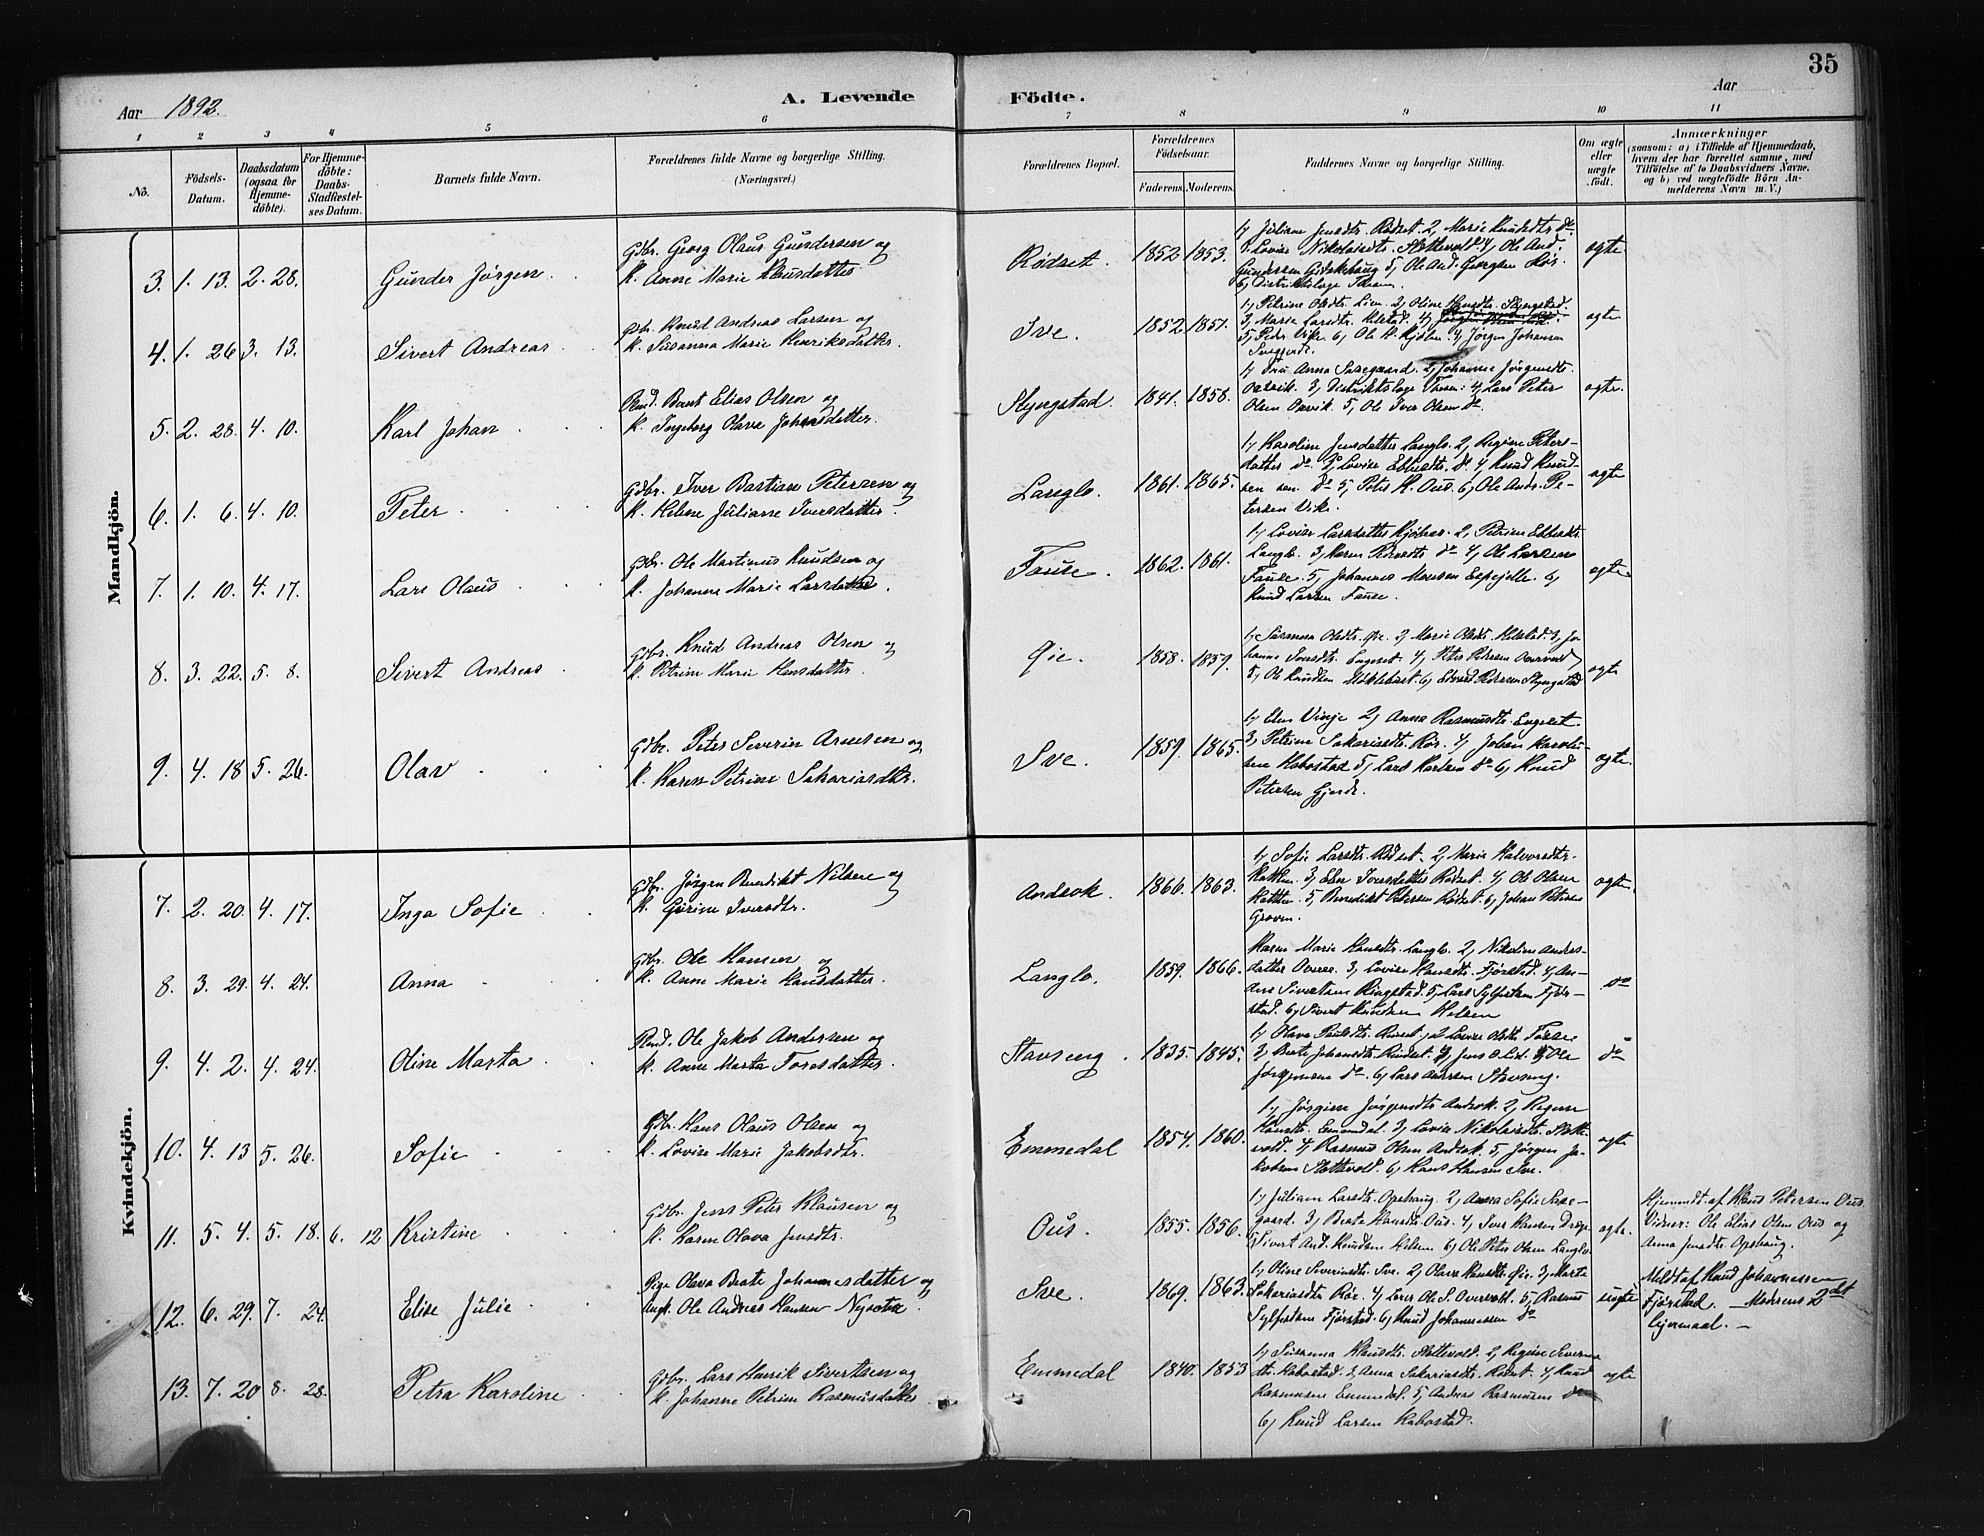 35
Aar 1892.
A. Levende Födte.
Aar
1 2 3 4 5 6 7 8 9 10 11
No.
Födsels-Datum.
Daabsdatum (ogsaa for Hjemme-döbte).
For Hjemme-döbte: Daabs-Stadfæstel-ses Datum.
Barnets fulde Navn.
Forældrenes fulde Navne og borgerlige Stilling. (Næringsvei.)
Forældrenes Bopæl.
Forældrenes Födselsaar.
Faderens. Moderens.
Faddernes Navne og borgerlige Stilling.
Om ægte eller uægte födt.
Anmærkninger (saasom: a) i Tilfælde af Hjemmedaab, hvem der har forrettet samme, med Tilföielse af to Daabsvidners Navne, og b) ved uægtefödte Börn An-melderens Navn m. V.)
Mandkjön.
3. 1. 13. 2. 28. Gunder Jørgen
Gdbr. Georg Olaus Gundersen og
K. Anne Marie Klausdatter
Rødset. 1852 1853.
1, Juliane Jensdtr. Rødset. 2, Marie Knudsdtr. do.
3, Lovise Nikolaisdtr. Slettevold 4, Ole And.
Gundersen Gidskehaug 5, Ole And. Georgsen Rør.
6, Distriktslæge Thesen.
ægte
4. 1. 26 3. 13. Sivert Andreas
Gdbr. Knud Andreas Larsen og
K. Susanna Marie Henriksdatter.
Sve. 1852 1857.
1, Petrine Olsdtr. Lien. 2, Oline Hansdtr. Skjengstad
3, Marte Larsdtr. Helstad. 4,
5, Peder Vike 6, Ole H. Hjølen. 4, Jørgen Johansen
ægte
5. 2. 28. 4. 10. Karl Johan
Rmd. Bernt Elias Olsen og
K. Ingeborg Olave Johansdatter.
Skjengstad. 1841. 1858.
1, Fru Anna Saxegaard. 2, Johanne Jørgensdtr.
Oervik. 3, Distriktslæge Thesen: 4, Lars Peter
Olsen Oervik. 5, Ole Iver Olsen do
ægte.
6. 1. 6. 4. 10. Peter
Gdbr. Iver Bastian Petersen og
K. Helene Julianne Iversdatter.
Langlo. 1861. 1865.
1, Karoline Jensdatter Langlo. 2, Regine Peters-
datter do. 3, Lovise Ebbesdtr. do 4, Knud Knud-
sen sen. do 5, Peter K. Ous. 6, Ole Andr. Pe-
tersen Vike.
ægte
7. 1. 10. 4. 17. Lars Olaus
Gdbr. Ole Martinus Knudsen og
K. Johanne Marie Larsdatter.
Fause. 1862. 1861.
1, Lovise Larsdatter Kjølsæ. 2, Petrine Ebbesdtr.
Langlo. 3, Karen Pedersdtr. do 4, Ole Larsen
Fause. 5, Johannes Monsen Espejelle. 6,
Knud Larsen Fause.
ægte
8. 3. 22. 5. 8. Sivert Andreas
Gdbr. Knud Andreas Olsen og
K. Petrine Marie Hansdatter.
Øie. 1858. 1859.
1, Susanna Olsdtr. Øie. 2, Marie Olsdtr. Helstad 3, Jo
hanne Iversdtr. Engeset. 4, Peter Petersen Overvold,
5, Ole Knudsen Stokkebust. 6, Edvard Petersen Skjengstad
ægte
9. 4. 18 5. 26. Olav
Gdbr. Peter Severin Arnesen og
K. Karen Petrine Sakariasdtr.
Sve. 1859. 1865.
1, Elen Vinje 2, Anna Rasmusdtr. Engeset.
3, Petrine Sakariasdtr. Rør. 4, Johan Karoli-
sen Habostad 5, Lars Karlsen do 6, Knud
Petersen Gjerde.
ægte.
Kvindekjön.
7. 2. 20. 4. 17. Inga Sofie
Gdbr. Jørgen Benedikt Nilsen og
K. Gurine Iversdtr.
Andsok. 1866. 1863.
1, Sofie Larsdtr. Rødset. 2, Marie Halvorsdtr.
Hatlen. 3, Else Iversdatter Rødset. 4, Ole Olsen
Hatlen. 5, Benedikt Petersen Rødset. 6, Johan Petersen
Groven.
ægte.
8. 3. 29. 4. 24. Anna
Gdbr. Ole Hansen og
K. Anne Marie Hansdatter.
Langlo. 1859. 1866.
Karen Marie Hansdtr. Langlo. 2, Nikoline Anders-
datter Overaa. 3, Lovise Hansdtr. Fjørstad. 4, An-
ders Sivertsen Ringstad. 5, Lars Sylfestsen Fjør-
stad. 6, Sivert Knudsen Helsem
do
9. 4. 2. 4. 24. Oline Marta
Rmd. Ole Jakob Andersen og
K. Anne Marta Toresdatter.
Stavseng. 1835. 1845.
1, Olava Paulsdtr. Rødset. 2 Lovise Olsdtr. Fause
3, Beate Johansdtr. Rindset. 4, Jens O. Lid. 5, Ole
Jørgensen do. 6, Lars Andersen Stavseng.
do
10. 4. 13 5. 26. Sofie
Gdbr. Hans Olaus Olsen og
K. Lovise Marie Jakobsdtr.
Emmedal 1854. 1860.
1, Jørgine Jørgensdtr. Andsok. 2, Regine
Hansdtr. Emmedal. 3, Lovise Nikolaisdtr. Slette-
vold. 4, Rasmus Olsen Andsok. 5, Jørgen Ja-
kobsen Slettevold. 6, Hans Hansen Sve.
ægte
11. 5. 4. 5. 18. 6. 12 Kristine
Gdbr. Jens Peter Klausen og
K. Karen Olava Jensdtr.
Ous. 1855. 1856.
1, Juliane Larsdtr. Opshaug. 2, Anna Sofie Saxe-
gaard. 3, Beate Hansdtr. Ous. 4, Iver Hansen Drage
5, Sivert And. Knudsen Helsem 6, Ole Peter Olsen Langlo
ægte.
Hjemmedt. af Klaus Petersen Ous.
Vidner: Ole Elias Olsen Ous og
Anna Jensdtr. Opshaug.
12. 6. 29. 7. 24. Elise Julie
Pige Olava Beate Johannesdatter og
Ungk. Ole Andreas Hansen Nysæter
Sve. 1869. 1863.
1, Oline Severinsdtr. Sve. 2, Olava Hansdtr. Øie. 3, Marte
Sakariasdtr. Rør. 4, Lærer Ole S. Overvoll. 5, Rasmus
Sylfestsen Fjørstad. 6, Knud Johannessen do
uægte
Meldt af Knud Johannessen
Fjørstad. — Moderens 2det
Leiermaal. —
13. 7. 20 8. 28. Petra Karoline
Gdbr. Lars Henrik Sivertsen og
K. Johanne Petrine Rasmusdatter
Emmedal 1840. 1853
1, Susanna Klausdtr. Slettevold. 2, Regine Severins
dtr. Habostad. 3, Anna Sakariasdtr. Rødset. 4, Knud
Rasmussen Emmedal. 5, Anders Rasmussen do
6, Knud Larsen Habostad.
ægte